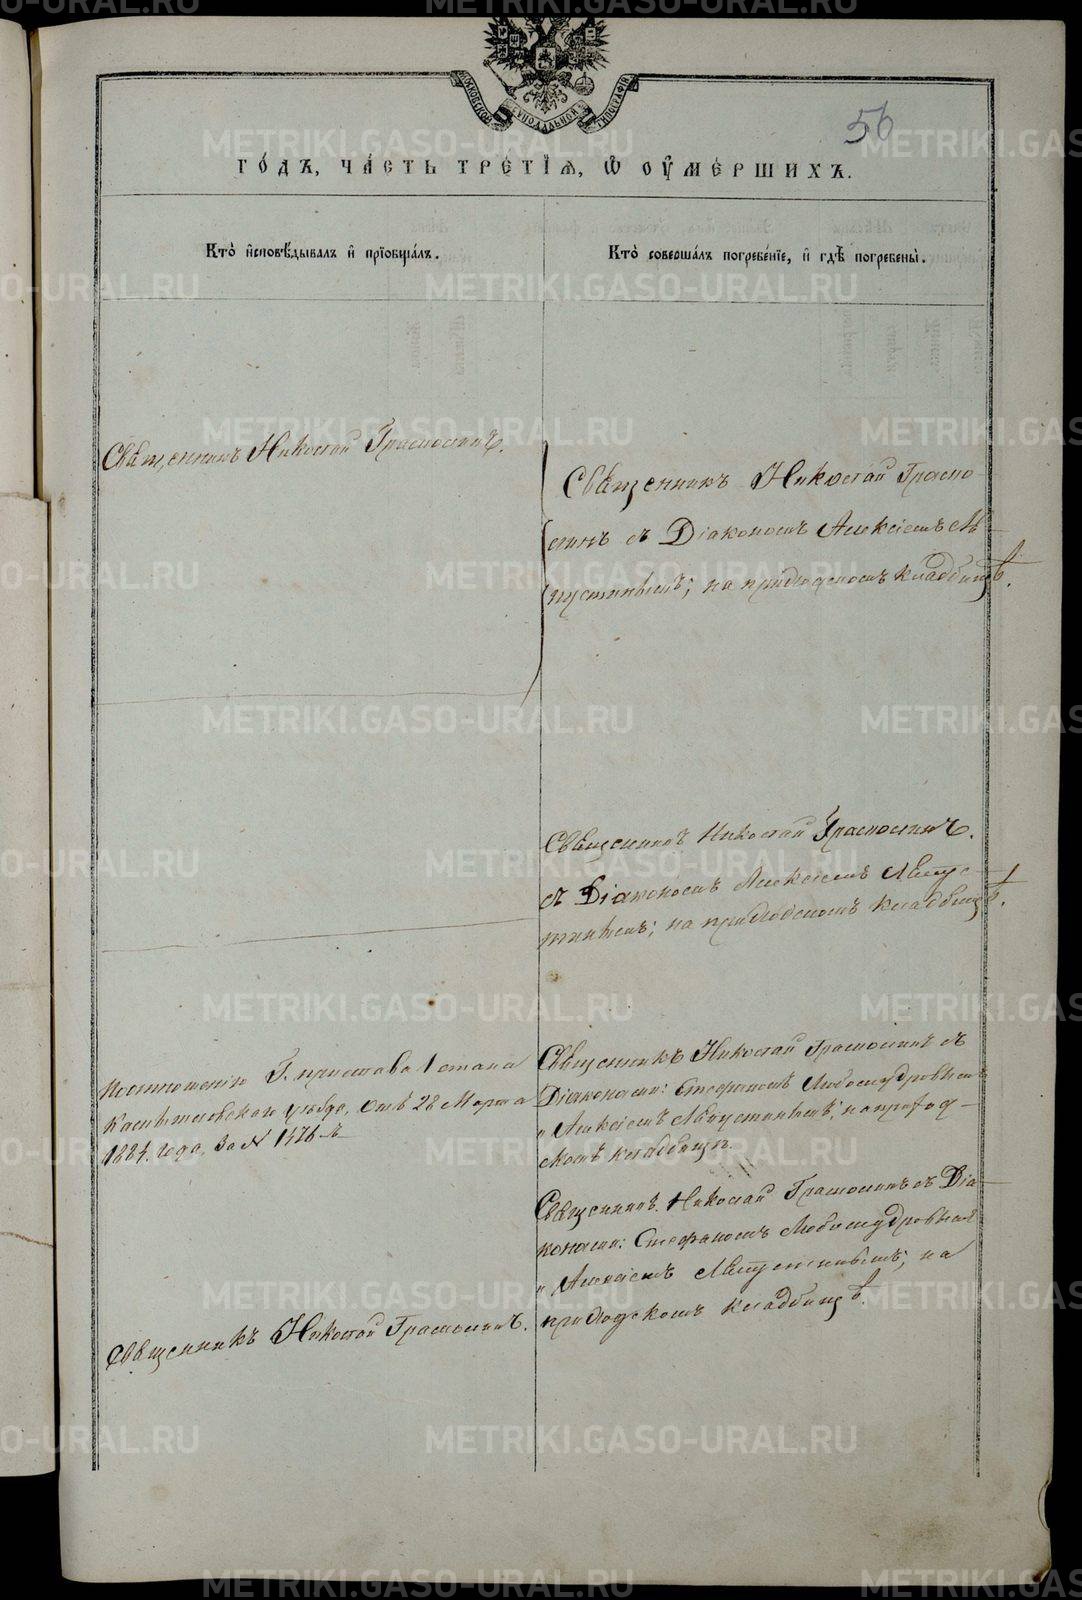 МОСКОВСКОЙ СѴНОДАЛЬНОЙ ТИПОГРАФІИ
56
ГО́ДЪ, ЧА́СТЬ ТРЕ́ТІЯ, Ѡ҆ ОУ҆МЕ́РШИХЪ.
Кто̀ и҆сповѣ́дывалъ и҆ прїобща́лъ.
Кто̀ соверша́лъ погребе́нїе, и҆ гдѣ̀ погребены̀.
Священникъ Николай Грамолинъ.
Священникъ Николай Грамо-
линъ съ Діакономъ Алексіемъ Ав-
густинымъ; на приходскомъ кладбищѣ.
Священникъ Николай Грамолинъ.
съ Діакономъ Алексіемъ Авгус-
тинымъ; на приходскомъ кладбищѣ.
По отношенію Г. пристава 1 стана
уѣзда, отъ 28 Марта
1884. года, за №
Священникъ Николай Грамолинъ съ
Діаконами: Стефаномъ Любомудровымъ
и Алексіемъ Августинымъ; на приход-
скомъ кладбищѣ.
Священникъ Николай Грамолинъ съ Діа-
конами: Стефаномъ Любомудровымъ
и Алексіемъ Августинымъ; на
приходскомъ кладбищѣ.
Священникъ Николай Грамолинъ.
METRIKI.GASO-URAL.RU